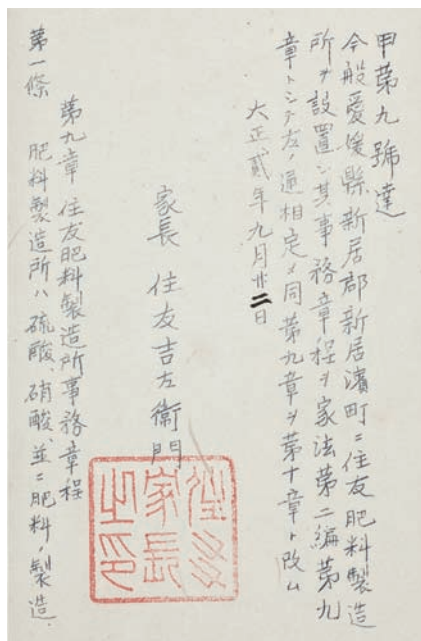 甲第九號達
今般愛媛縣新居郡新居濱町ニ住友肥料製造
所ヲ設置シ其事務章程ヲ家法第二編第九
章トシテ左ノ通相定メ同第九章ヲ第十章ト改ム
大正貳年九月廿二日
家長 住友吉左衛門
住友
家長
之印
第九章 住友肥料製造所事務章程
第一條 肥料製造所ハ硫酸、硝酸、並ニ肥料ノ製造、